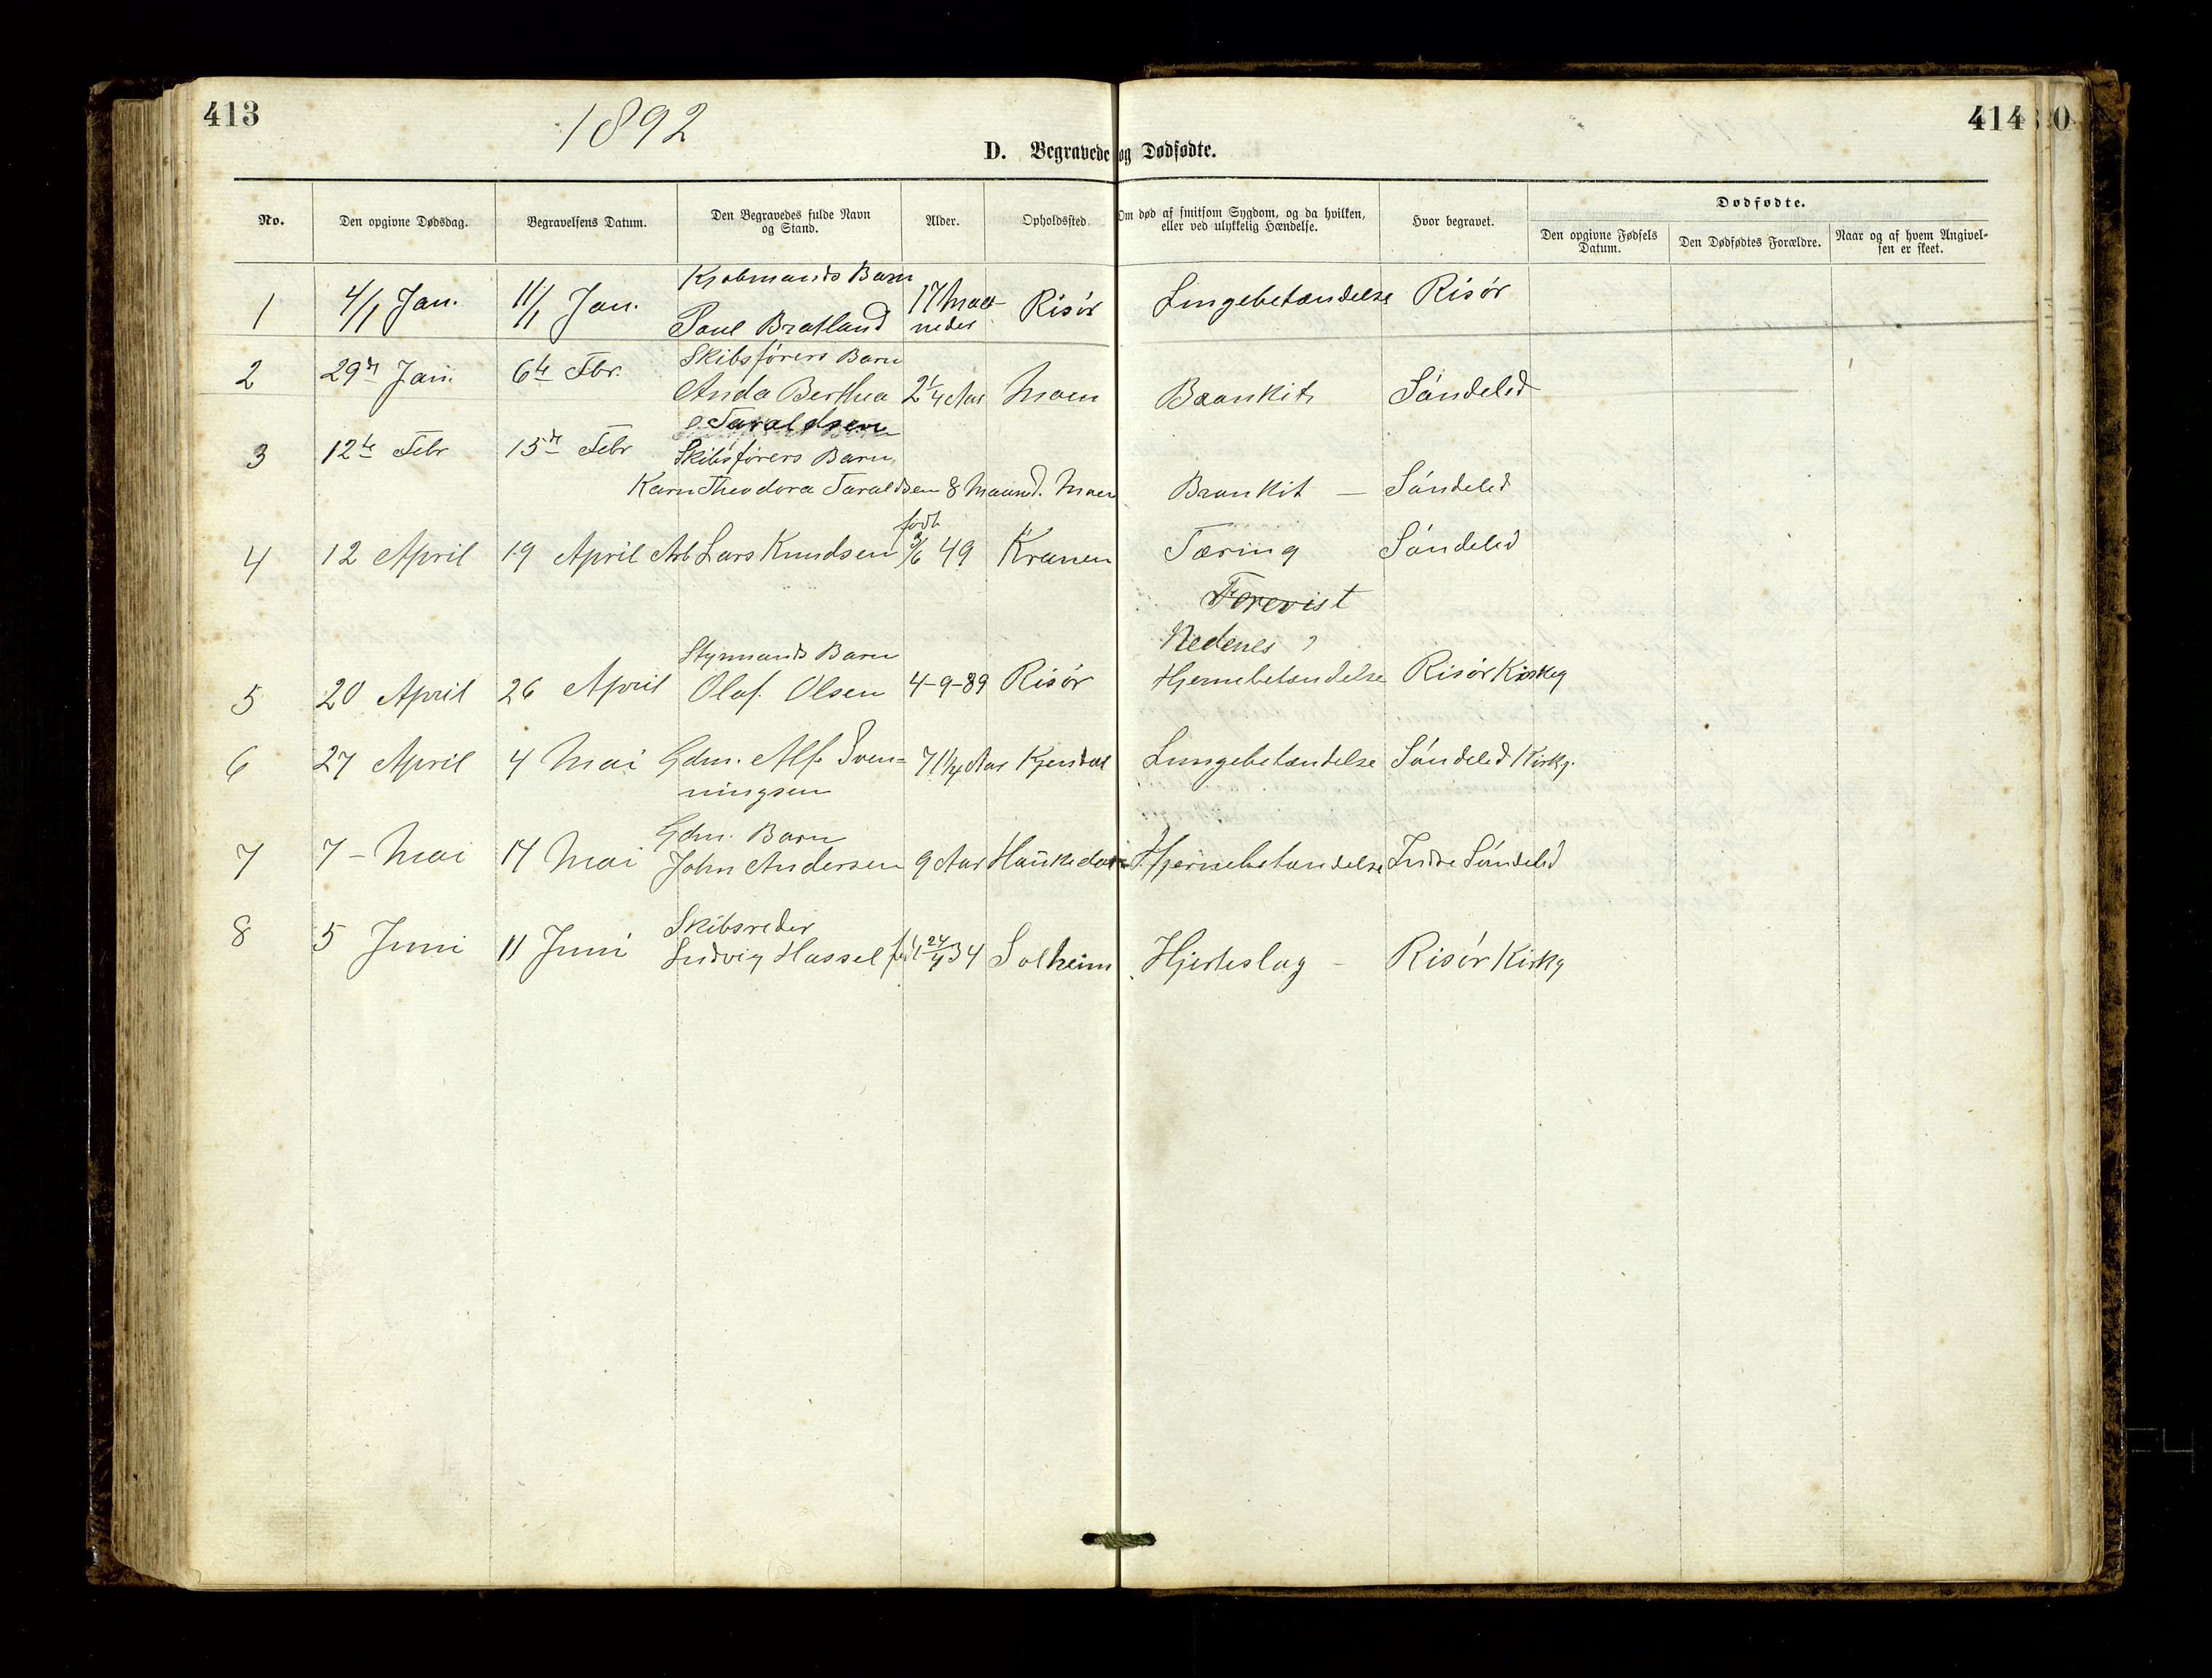 413
1892
414
0
D. Begravede og Dødfødte.
No.
Den opgivne Dødsdag.
Begravelsens Datum.
Den Begravedes fulde Navn og Stand.
Alder.
Opholdssted.
Om død af smitsom Sygdom, og da hvilken, eller ved ulykkelig Hændelse.
Hvor begravet.
Dødfødte.
Den opgivne Fødsels Datum.
Den Dødfødtes Forældre.
Naar og af hvem Angivelsen er skeet.
Kjøbmands Barn
1 4/1 Jan. 11/1 Jan. Paul Bratland 17 Maaneder Risør Lungebetændelse Risør
Skibsførers Barn
2 29de Jan. 6te Fbr. Anda Berthea Taraldsen 2 1/4 Aar Moen Brankit Søndeled
Skibsførers Barn
3 12te Febr 15de Febr Karn Theodora Taraldsen 8 Maaned. Moen Brankit — Søndeled
4 12 April 19 April Arb Lars Knudsen født 3/6 49 Kranen Tæring Søndeled
Forevist
Nedenes
Styrmands Barn
5 20 April 26 April Olaf Olsen 4-9-89 Risør Hjernebetændelse Risør Kirkeg
6 27 April 4 Mai Gdm. Alf Sven=
ningsen 71 1/4 Aar Kjendal Lungebetændelse Søndeled Kirkg.
Gdm. Barn
7 7 - Mai 14 Mai John Andersen 9 Aar Haukedalen Hjernebetændelse Indre Søndeled
Skibsreder
8 5 Juni 11 Juni Ludvig Hassel født 24/4 34 Solheim Hjerteslag - Risør Kirkg